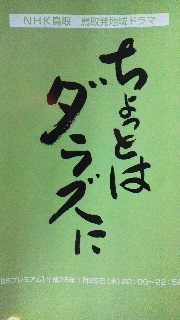 NHK鳥取 鳥取発地域ドラマ
ちょっとは
ダラズに
BSプレミアム 平成26年1月29日(水)22:00〜22:59